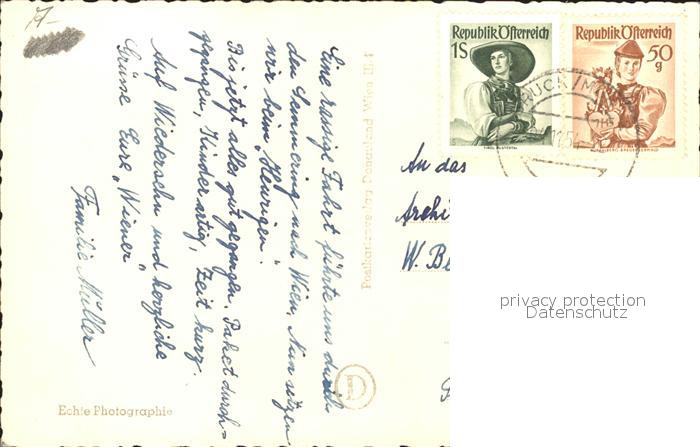 Eine rassige Fahrt führte uns durch
den Semmering nach Wien. Nun sitzen
wir beim "Heurigen".
Bis jetzt alles gut gegangen. Paket durch-
gegangen, Kinder artig, Zeit kurz.
Auf Wiedersehn und herzliche
Grüsse Eure "Wiener"
Familie Müller
Echte Photographie
Postkartenverlag
Wien III.
D
Republik Österreich
1S
Republik Österreich
50
g
BRUCK/M
An das
Archi
W. Be
privacy protection
Datenschutz